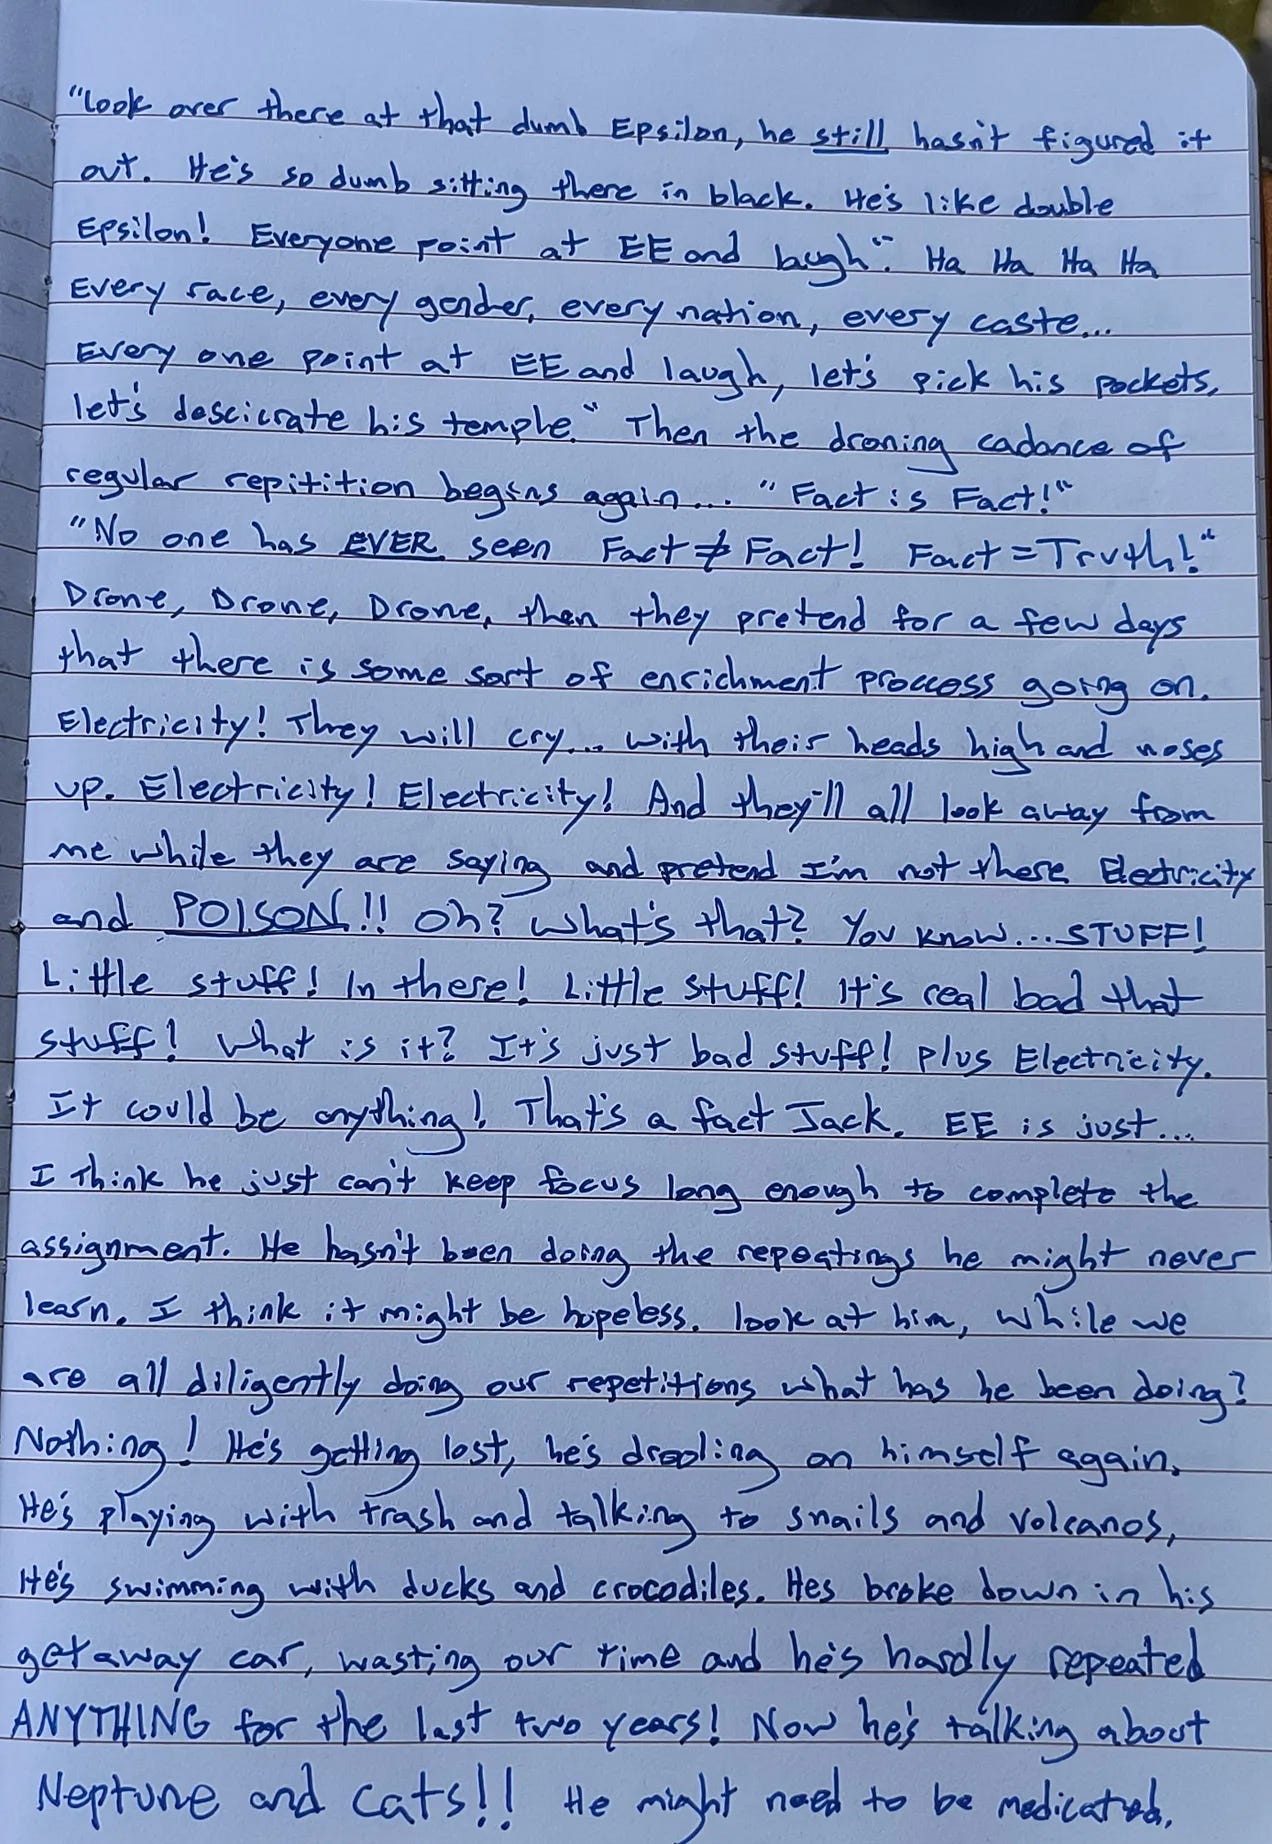 "Look over there at that dumb Epsilon, he still hasn't figured it
out. He's so dumb sitting there in black. He's like double
Epsilon! Everyone point at EE and laugh". Ha Ha Ha Ha
Every race, every gender, every nation, every caste...
Every one point at EE and laugh, let's pick his pockets,
let's descicrate his temple." Then the droning cadance of
regular repitition begins again... "Fact is Fact!"
"No one has EVER seen Fact ≠ Fact! Fact = Truth!"
Drone, Drone, Drone, then they pretend for a few days
that there is some sort of enrichment proccess going on.
Electricity! They will cry... with their heads high and noses
up. Electricity! Electricity! And they'll all look away from
me while they are saying and pretend I'm not there Electricity
and POISON!! Oh? What's that? You know...STUFF!
Little stuff! In there! Little stuff! It's real bad that
stuff! What is it? It's just bad stuff! plus Electricity.
It could be anything! That's a fact Jack. EE is just...
I think he just can't keep focus long enough to complete the
assignment. He hasn't been doing the repeatings he might never
learn. I think it might be hopeless. look at him, while we
are all diligently doing our repetitions what has he been doing?
Nothing! He's getting lost, he's drooling on himself again.
He's playing with trash and talking to snails and volcanos,
He's swimming with ducks and crocodiles. Hes broke down in his
getaway car, wasting our time and he's hardly repeated
ANYTHING for the last two years! Now he's talking about
Neptune and cats!! He might need to be medicated.